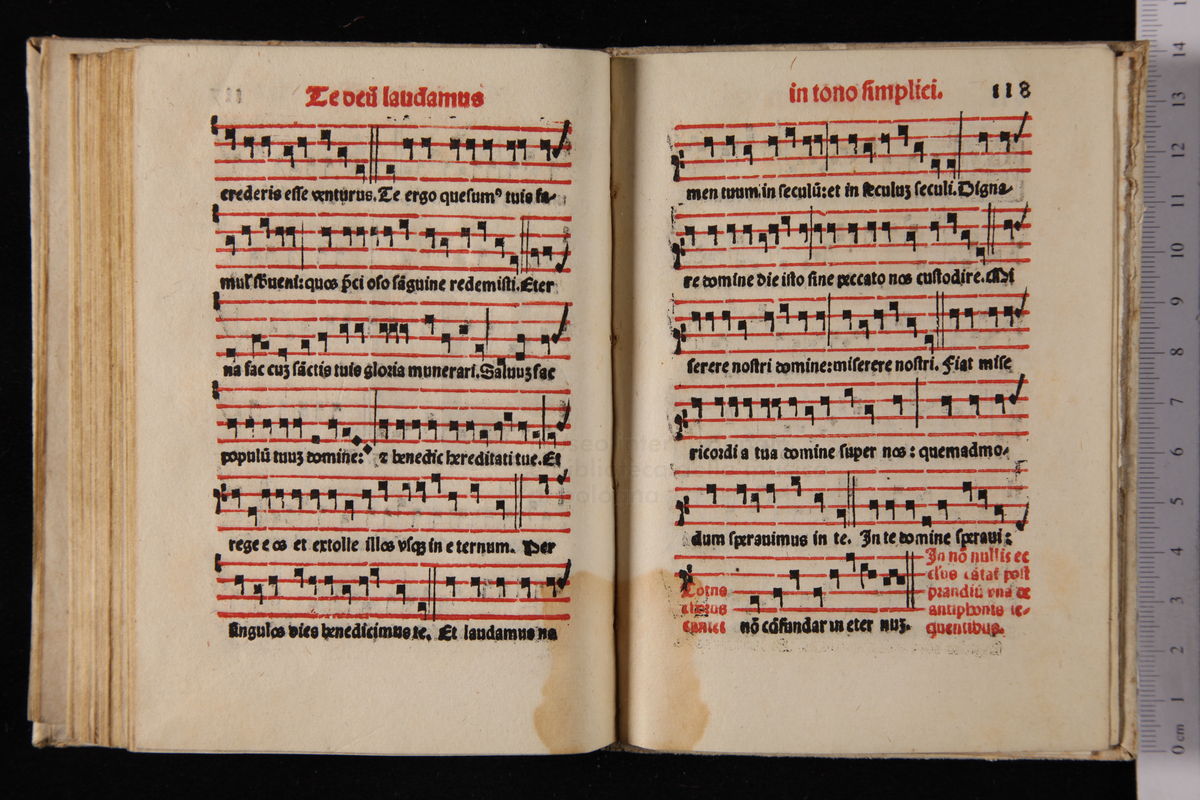 Te deū laudamus
crederis esse venturus. Te ergo quesumꝰ tuis fa-
mul' sbueni: quos p̄ci oso sāguine redemisti. Eter
na fac cuꝫ sāctis tuis gloria munerari. Saluuꝫ fac
populū tuuꝫ domine: ⁊ benedic hereditati tue. Et
rege e os et extolle illos vsqꝫ in e ternum. Per
singulos dies benedicimus te. Et laudamus no
in tono simplici. 118
men tuum in seculū: et in seculuꝫ seculi. Digna-
re domine die isto sine peccato nos custodire. Mi
serere nostri domine: miserere nostri. Fiat mise
ricordi a tua domine super nos: quemadmo-
dum sperauimus in te. In te domine speraui:
Totus
clerus
cantet
nō cōfundar in eter nuꝫ.
In nō nullis ec
cl'iis cātāt post
prandiū vna de
antiphonis se-
quentibus.
0 cm 1 2 3 4 5 6 7 8 9 10 11 12 13 14